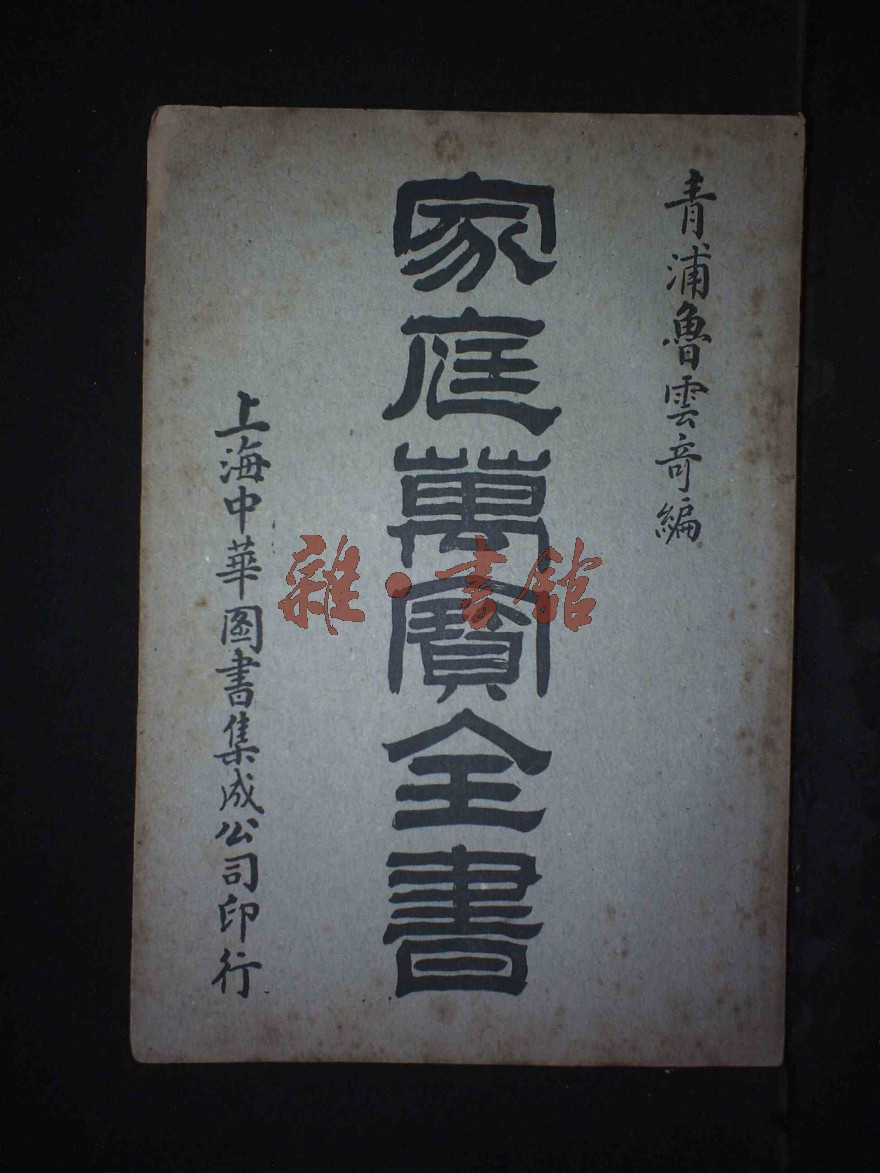 青浦魯雲奇編
家庭萬寳全書
上海中華圖書集成公司印行
雜·書舘